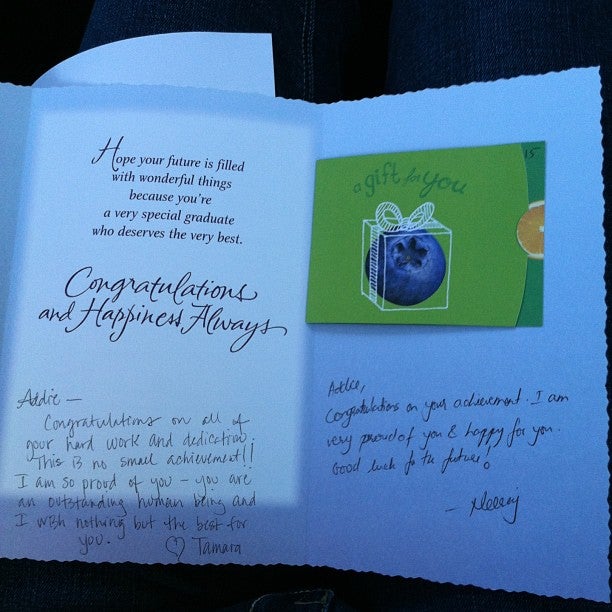 Hope your future is filled
with wonderful things
because you're
a very special graduate
who deserves the very best.
Congratulations
and Happiness Always
Addie —
Congratulations on all of
your hard work and dedication.
This is no small achievement!!
I am so proud of you — you are
an outstanding human being and
I wish nothing but the best for
you. ♡ Tamara
a gift for you
15
Addie,
Congratulations on your achievement. I am
very proud of you & happy for you.
Good luck for the future!